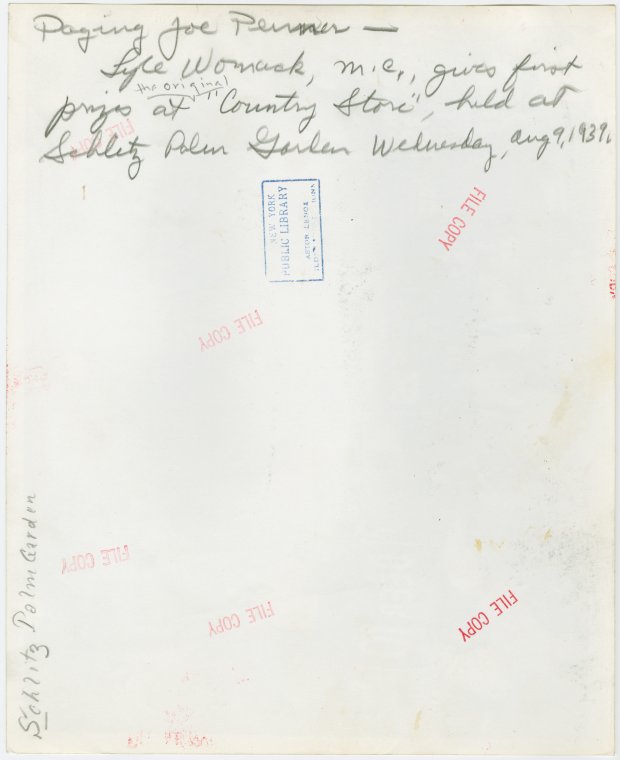 Paging Joe Penner —
Lyle Womack, m.c., gives first
the original
prizes at "Country Store", held at
Schlitz Palm Garden Wednesday, Aug 9, 1939.
FILE COPY
FILE COPY
NEW YORK
PUBLIC LIBRARY
ASTOR LENOX
FILE COPY
FILE COPY
FILE COPY
FILE COPY
Schlitz Palm Garden